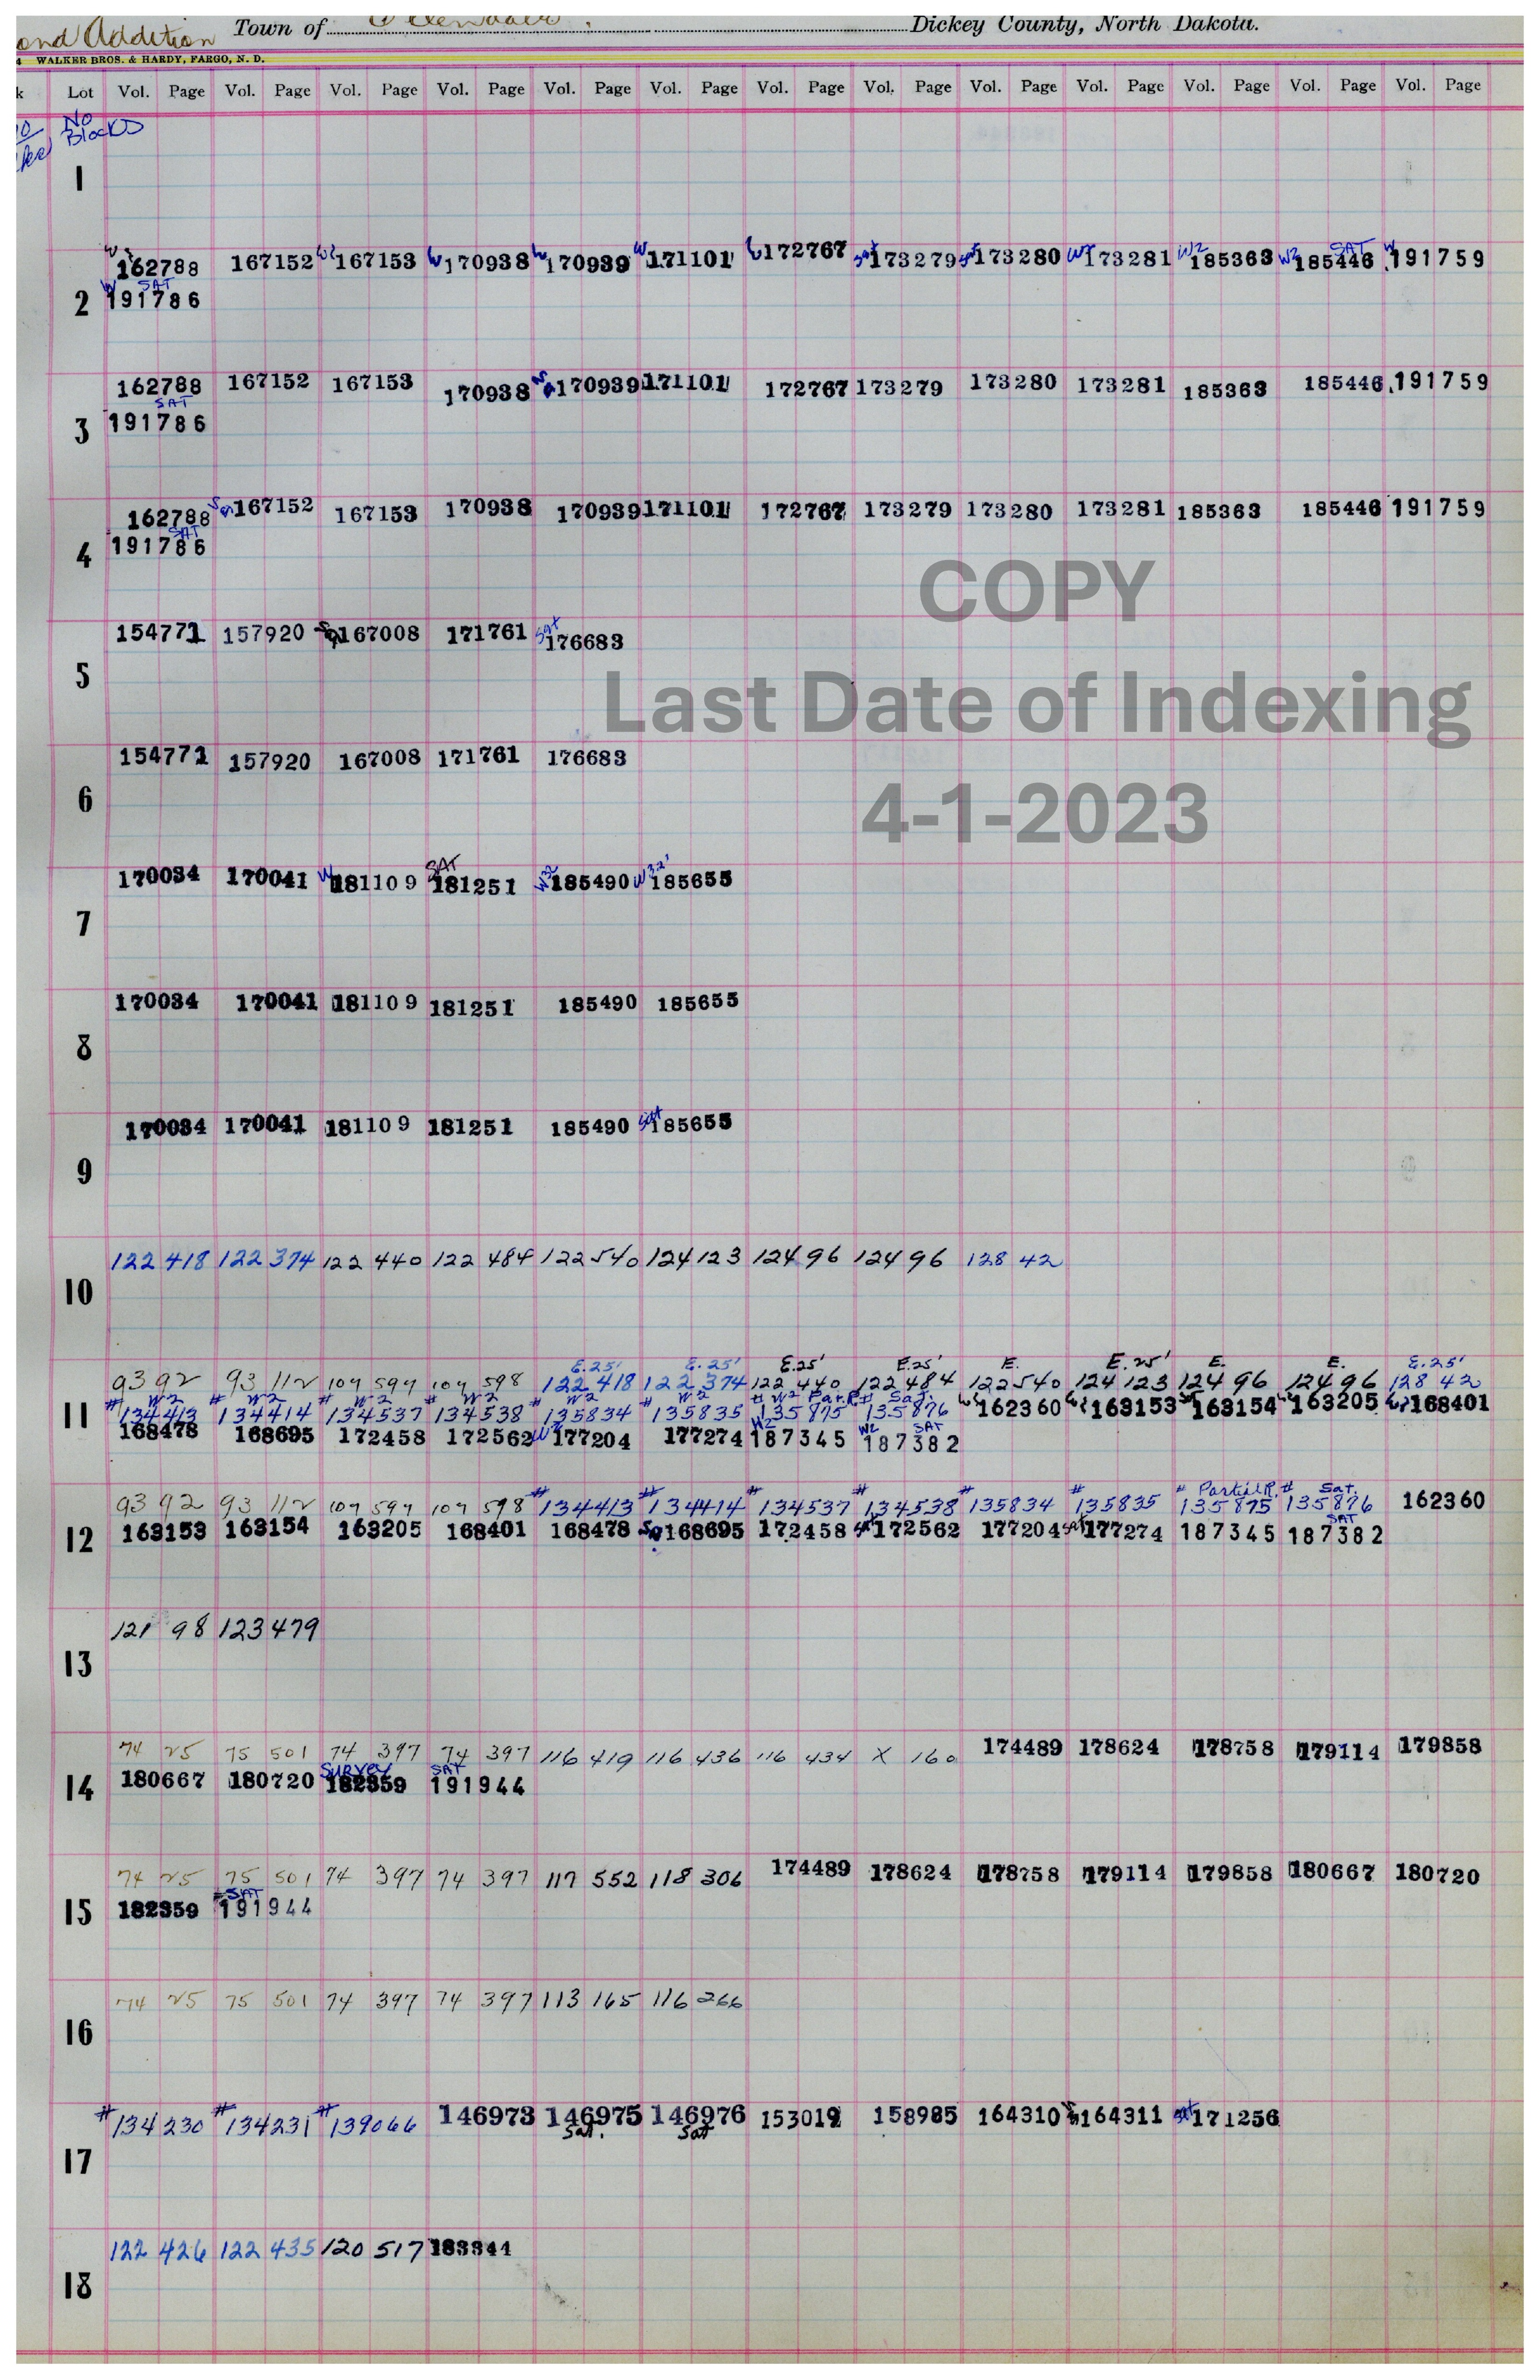 ond Addition Town of Dickey County, North Dakota.
4 WALKER BROS. & HARDY, FARGO, N. D.
k Lot Vol. Page Vol. Page Vol. Page Vol. Page Vol. Page Vol. Page Vol. Page Vol. Page Vol. Page Vol. Page Vol. Page Vol. Page Vol. Page
No
Blocks
1
162788 167152 167153 170938 170939 171101 172767 173279 173280 173281 185363 185446 191759
W2 W2 SAT W
W SAT
2 191786
162788 167152 167153 170938 170939 171101 172767 173279 173280 173281 185363 185446 191759
SAT
3 191786
162788 167152 167153 170938 170939 171101 172767 173279 173280 173281 185363 185446 191759
SAT
4 191786
COPY
154771 157920 167008 171761 Sat 176683
5
Last Date of Indexing
154771 157920 167008 171761 176683
6
4-1-2023
SAT
170034 170041 W 181109 181251 185490 W32' 185655
7
170034 170041 181109 181251 185490 185655
8
170034 170041 181109 181251 185490 Sat 185655
9
122 418 122 374 122 440 122 484 122 540 124 123 124 96 124 96 128 42
10
E.25' E.25' E.25' E.25' E. E.25' E. E. E.25'
93 92 93 112 107 597 107 598 122 418 122 374 122 440 122 484 122 540 124 123 124 96 124 96 128 42
# W2 # W2 # W2 # W2 # W2 # W2 # W2 Par.R # Sat.
11 134413 134414 134537 134538 135834 135835 135875 135876 162360 163153 163154 163205 168401
W2 W2 SAT
168478 168695 172458 172562 177204 177274 187345 187382
# Partial R. # Sat.
93 92 93 112 107 597 107 598 #134413 #134414 #134537 #134538 #135834 #135835 135875 135876 162360
SAT
12 163153 163154 163205 168401 168478 168695 172458 sat 172562 177204 sat 177274 187345 187382
121 98 123 479
13
74 25 75 501 74 397 74 397 116 419 116 436 116 434 X 160 174489 178624 178758 179114 179858
Survey SAT
14 180667 180720 182359 191944
74 25 75 501 74 397 74 397 117 552 118 306 174489 178624 178758 179114 179858 180667 180720
SAT
15 182359 191944
74 25 75 501 74 397 74 397 113 165 116 266
16
#134 230 #134231 #139066 146973 146975 146976 153019 158985 164310 164311 sat 171256
Sat. Sat
17
122 426 122 435 120 517 183344
18